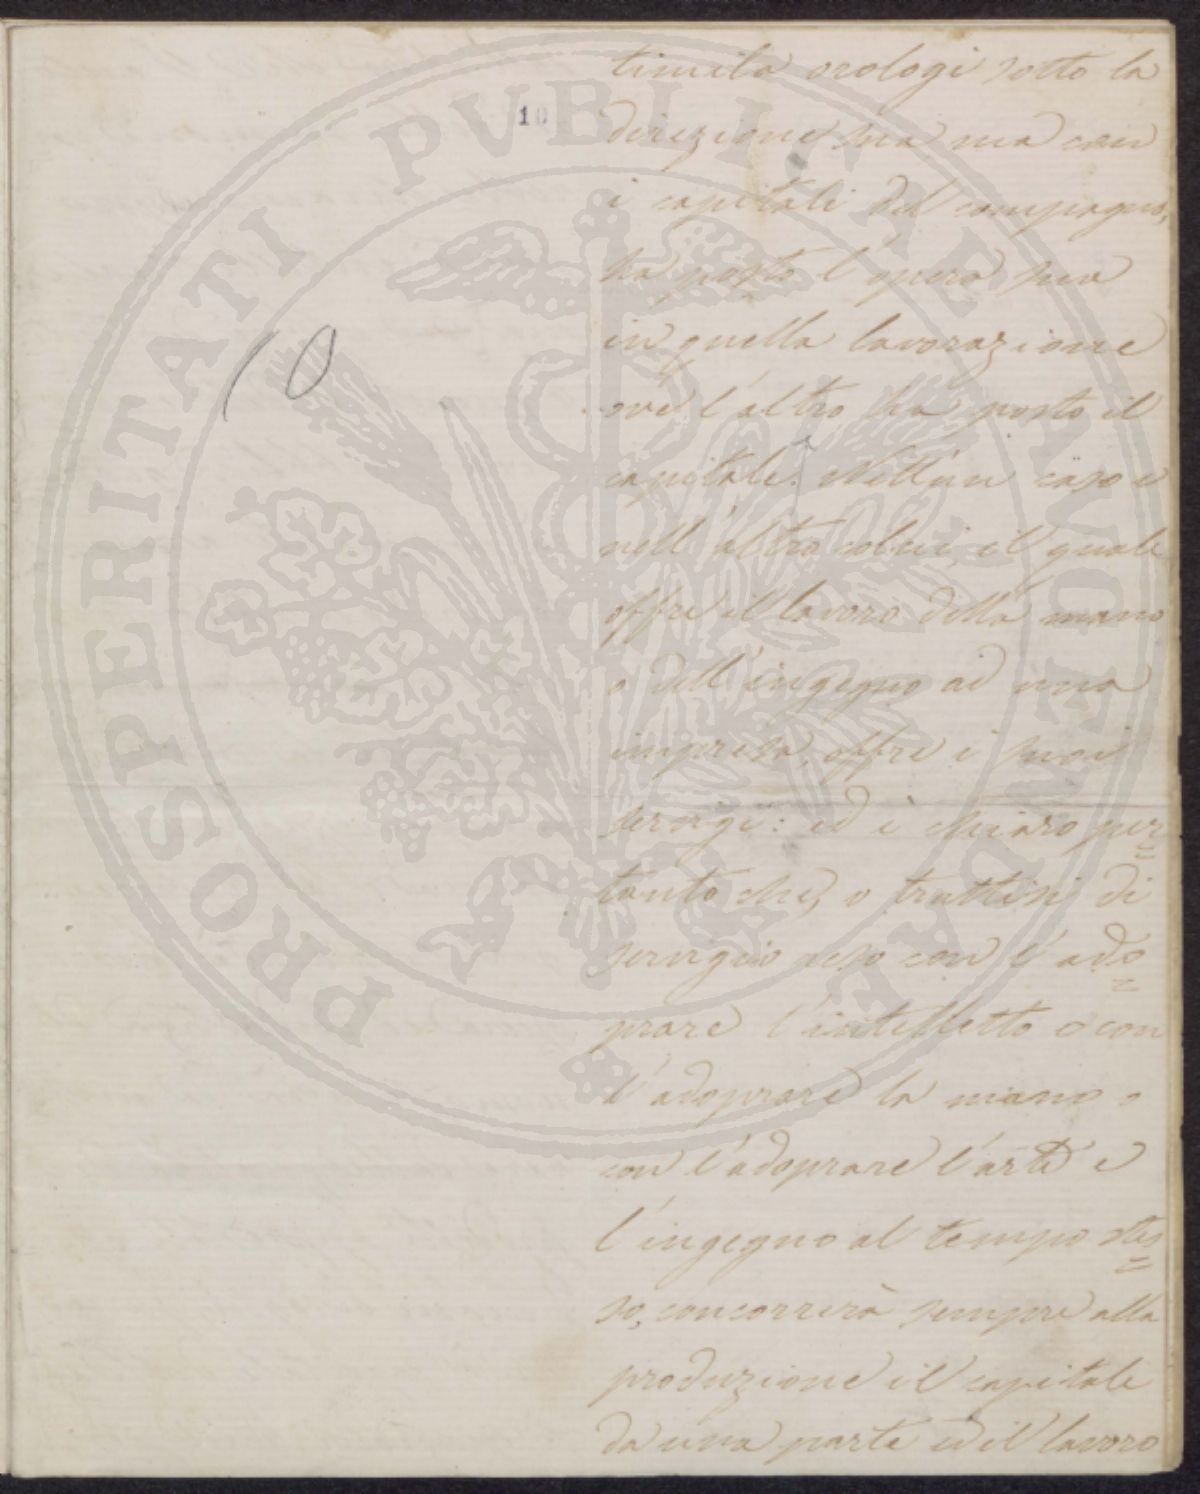 10
10
timila orologi sotto la
direzione sua, ma con
i capitali del compagno,
ha posto l'opera sua
in quella lavorazione
ove l'altro ha posto il
capitale. Nell'un caso e
nell'altro colui, il quale
offre il lavoro della mano
o dell'ingegno ad una
impresa, offre i suoi
servigi: ed è chiaro per
tanto che, o trattisi di
servigio reso con l'ado
prare l'intelletto o con
l'adoprare la mano o
con l'adoprare l'arte e
l'ingegno al tempo stes
so, concorrerà sempre alla
produzione il capitale
da una parte ed il lavoro
PROSPERITATI PVBLICAE AVGENDAE